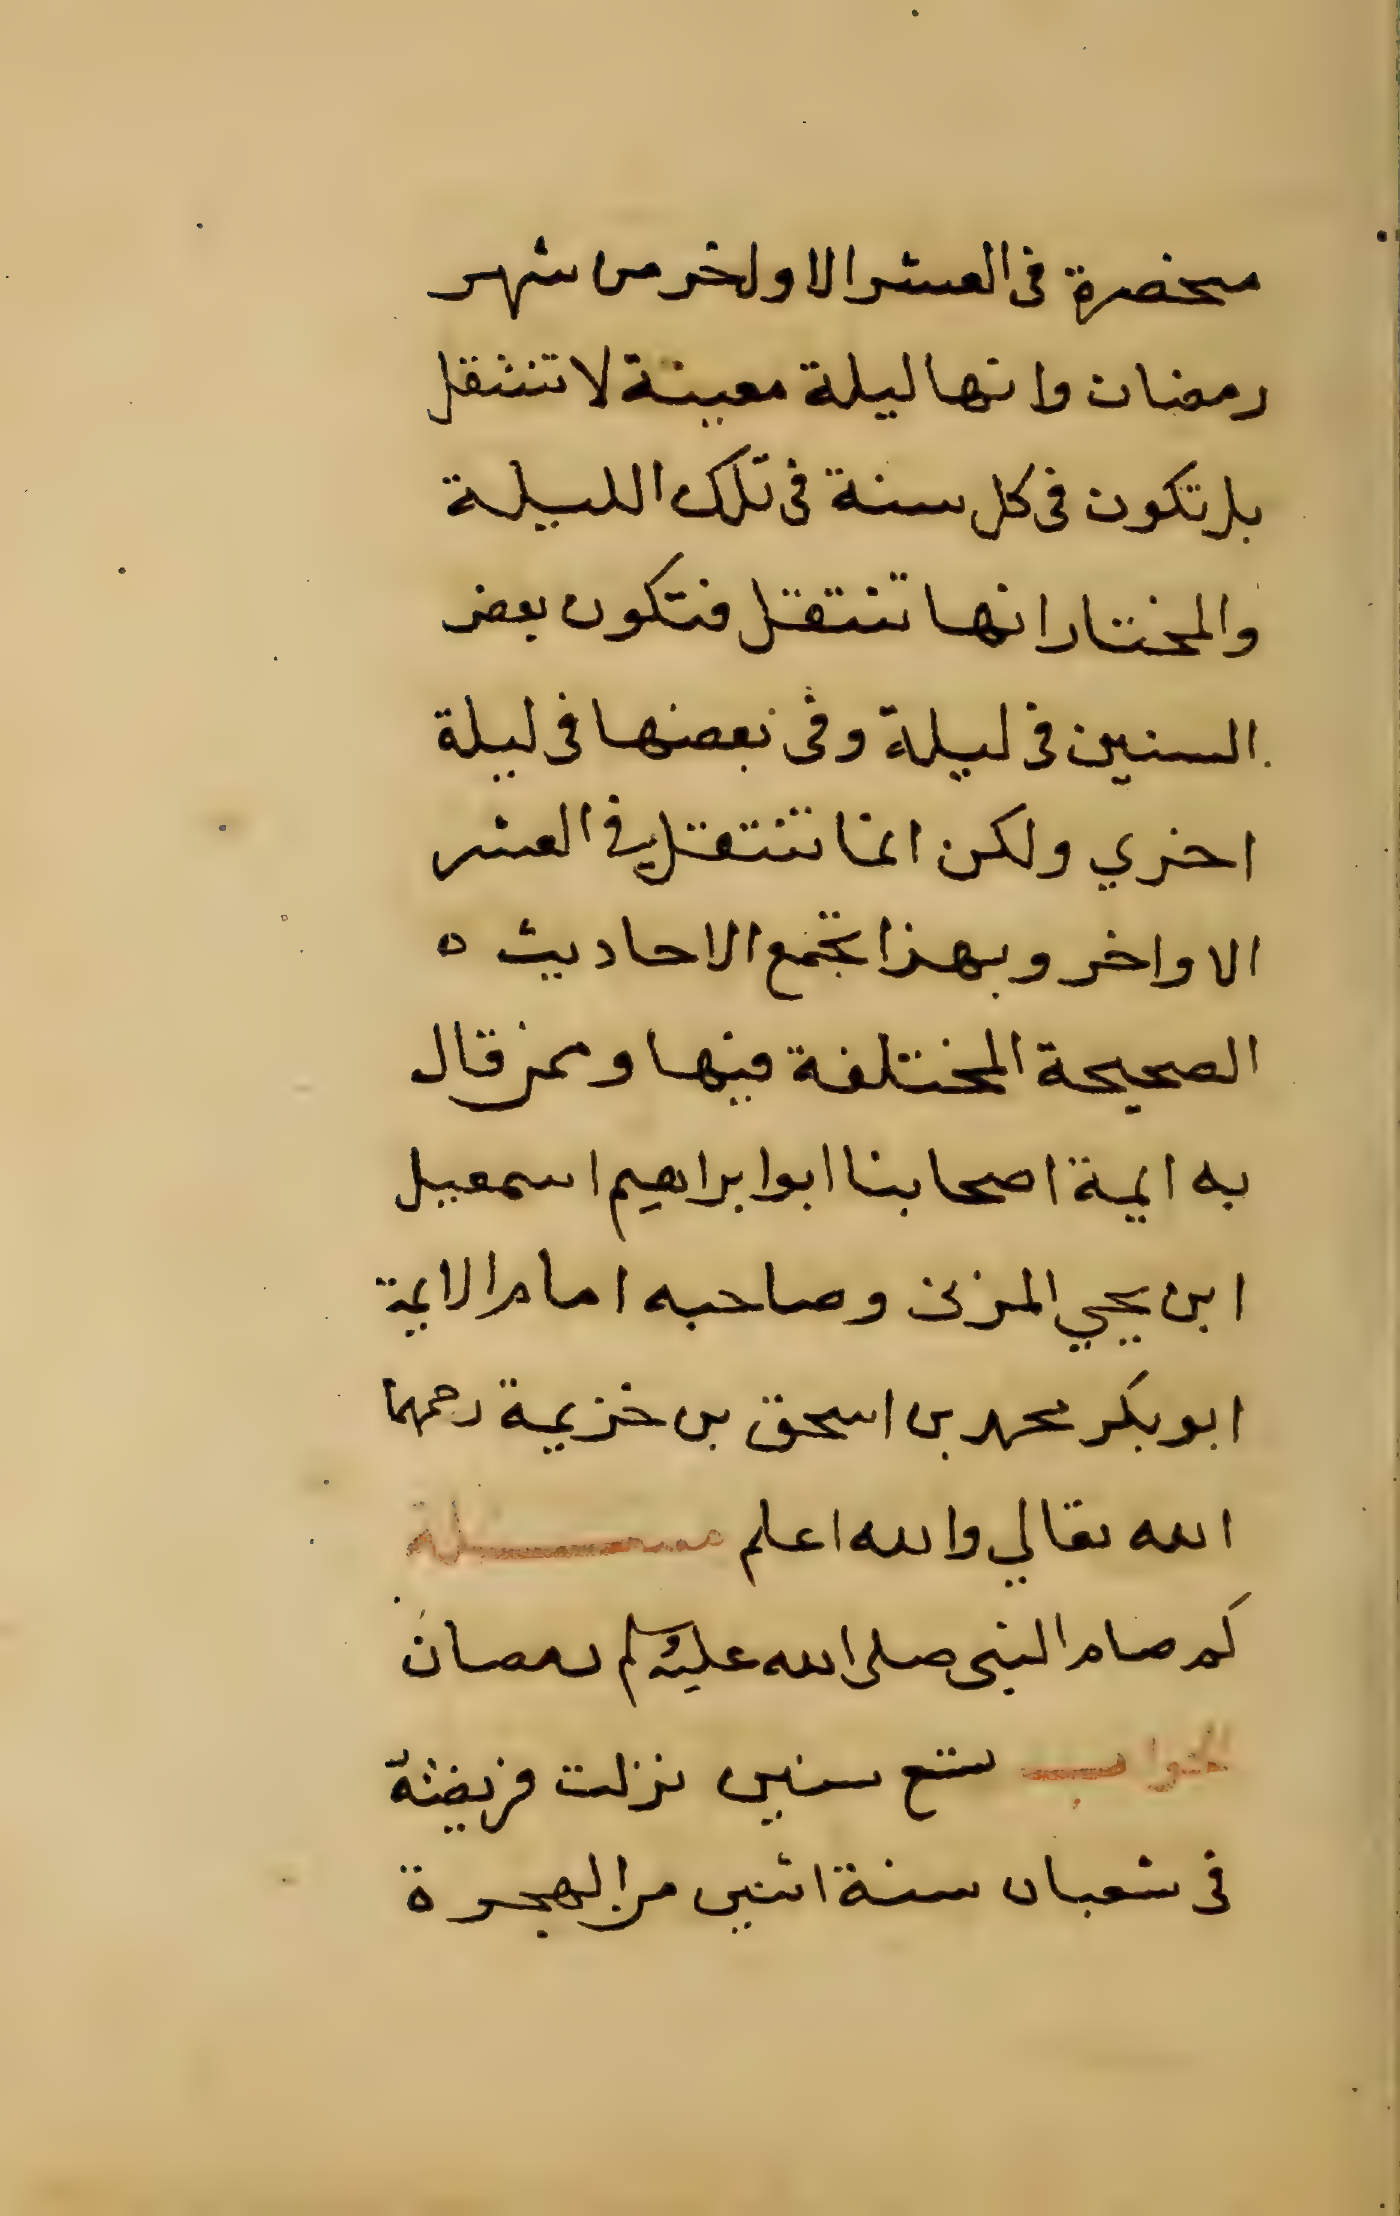 منحصرة في العشر الاواخر من شهر
رمضان وانها ليلة معينة لا تنتقل
بل تكون في كل سنة في تلك الليلة
والمختار انها تنتقل فتكون بعض
السنين في ليلة وفي بعضها في ليلة
اخري ولكن انما تنتقل في العشر
الاواخر وبهذا تجمع الاحاديث ه
الصحيحة المختلفة فيها وممن قال
به ايمة اصحابنا ابو ابراهيم اسمعيل
ابن يحيي المزني وصاحبه امام الايمة
ابو بكر محمد بن اسحق بن خزيمة رحمهما
الله تعالي والله اعلم مسئلة
كم صام النبي صلى الله عليه وسلم رمضان
الجواب تسع سنين نزلت فريضة
في شعبان سنة اثنين من الهجرة